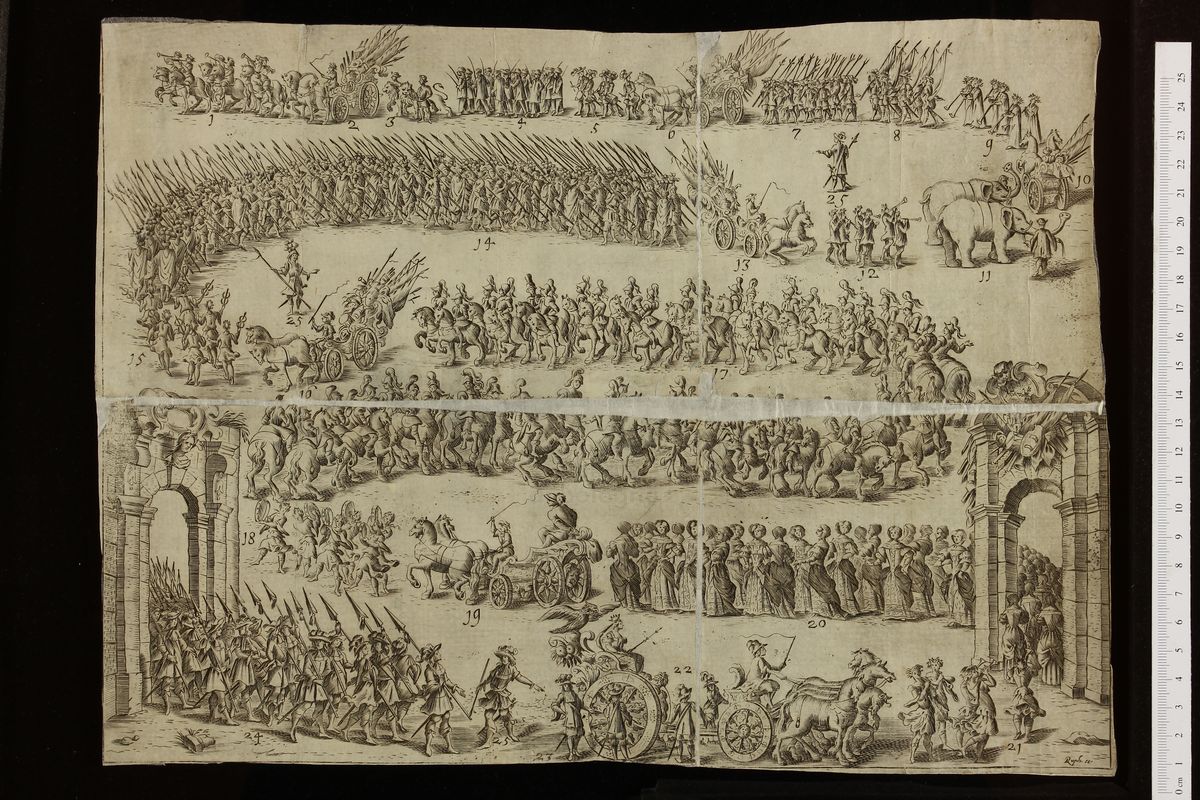 1 2 3 4 5 6 7 8
9
10
25
14 13 12 11
25
15
17
18
19 20
22
24 25 21
25
24
23
22
21
20
19
18
17
16
15
14
13
12
11
10
9
8
7
6
5
4
3
2
1
0 cm